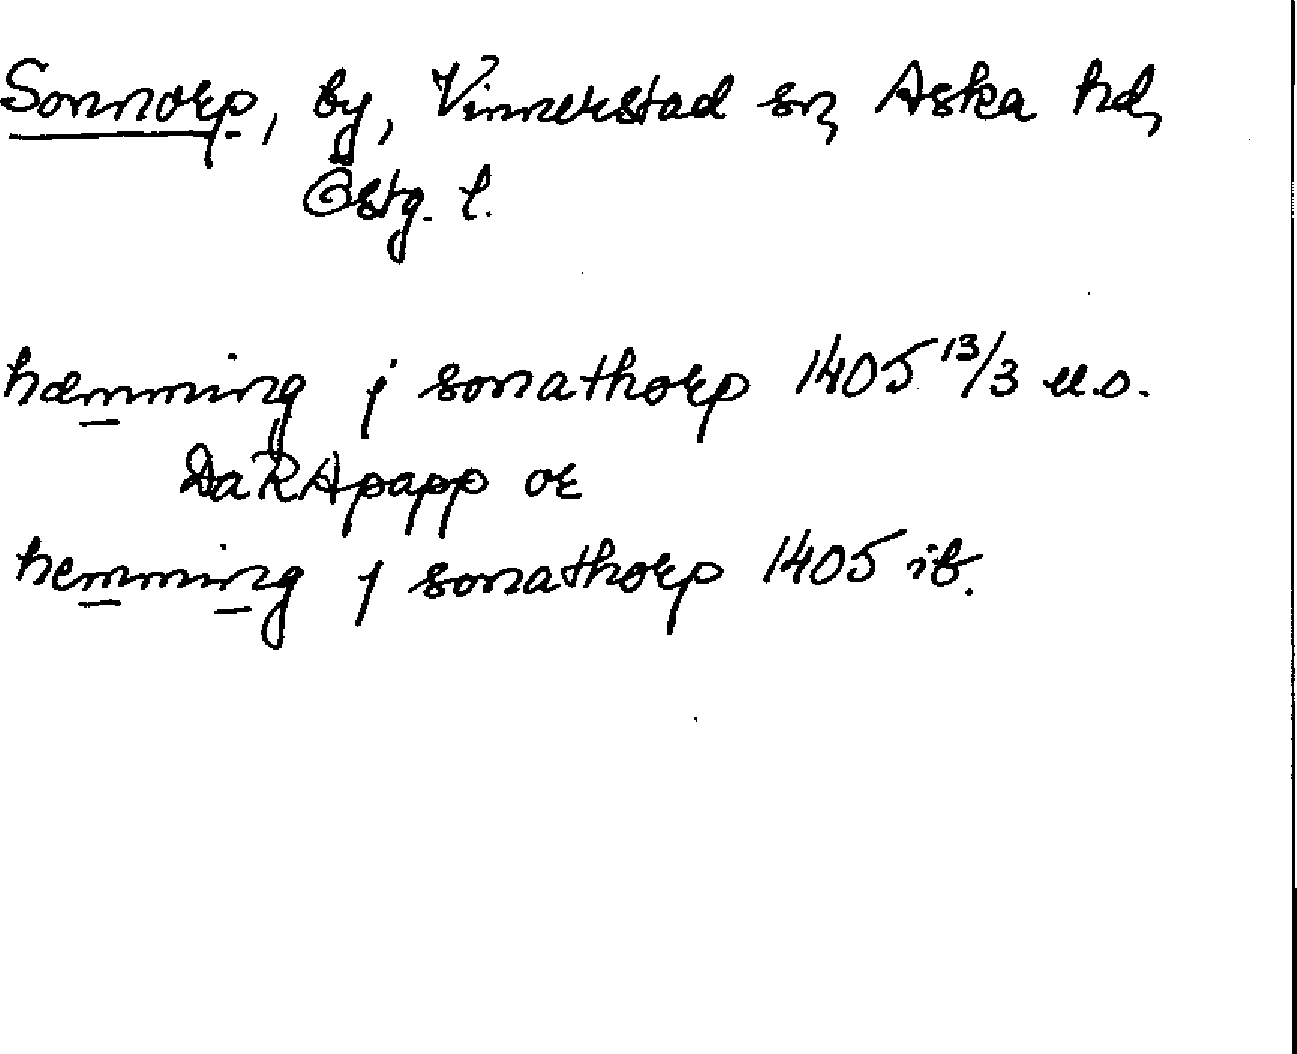 Sonnorp, by, Vinnerstad sn, Aska hd,
Östg. l.
hæmming j sonathorp 1405 13/3 u.o.
DaRApapp or
hemming j sonathorp 1405 ib.